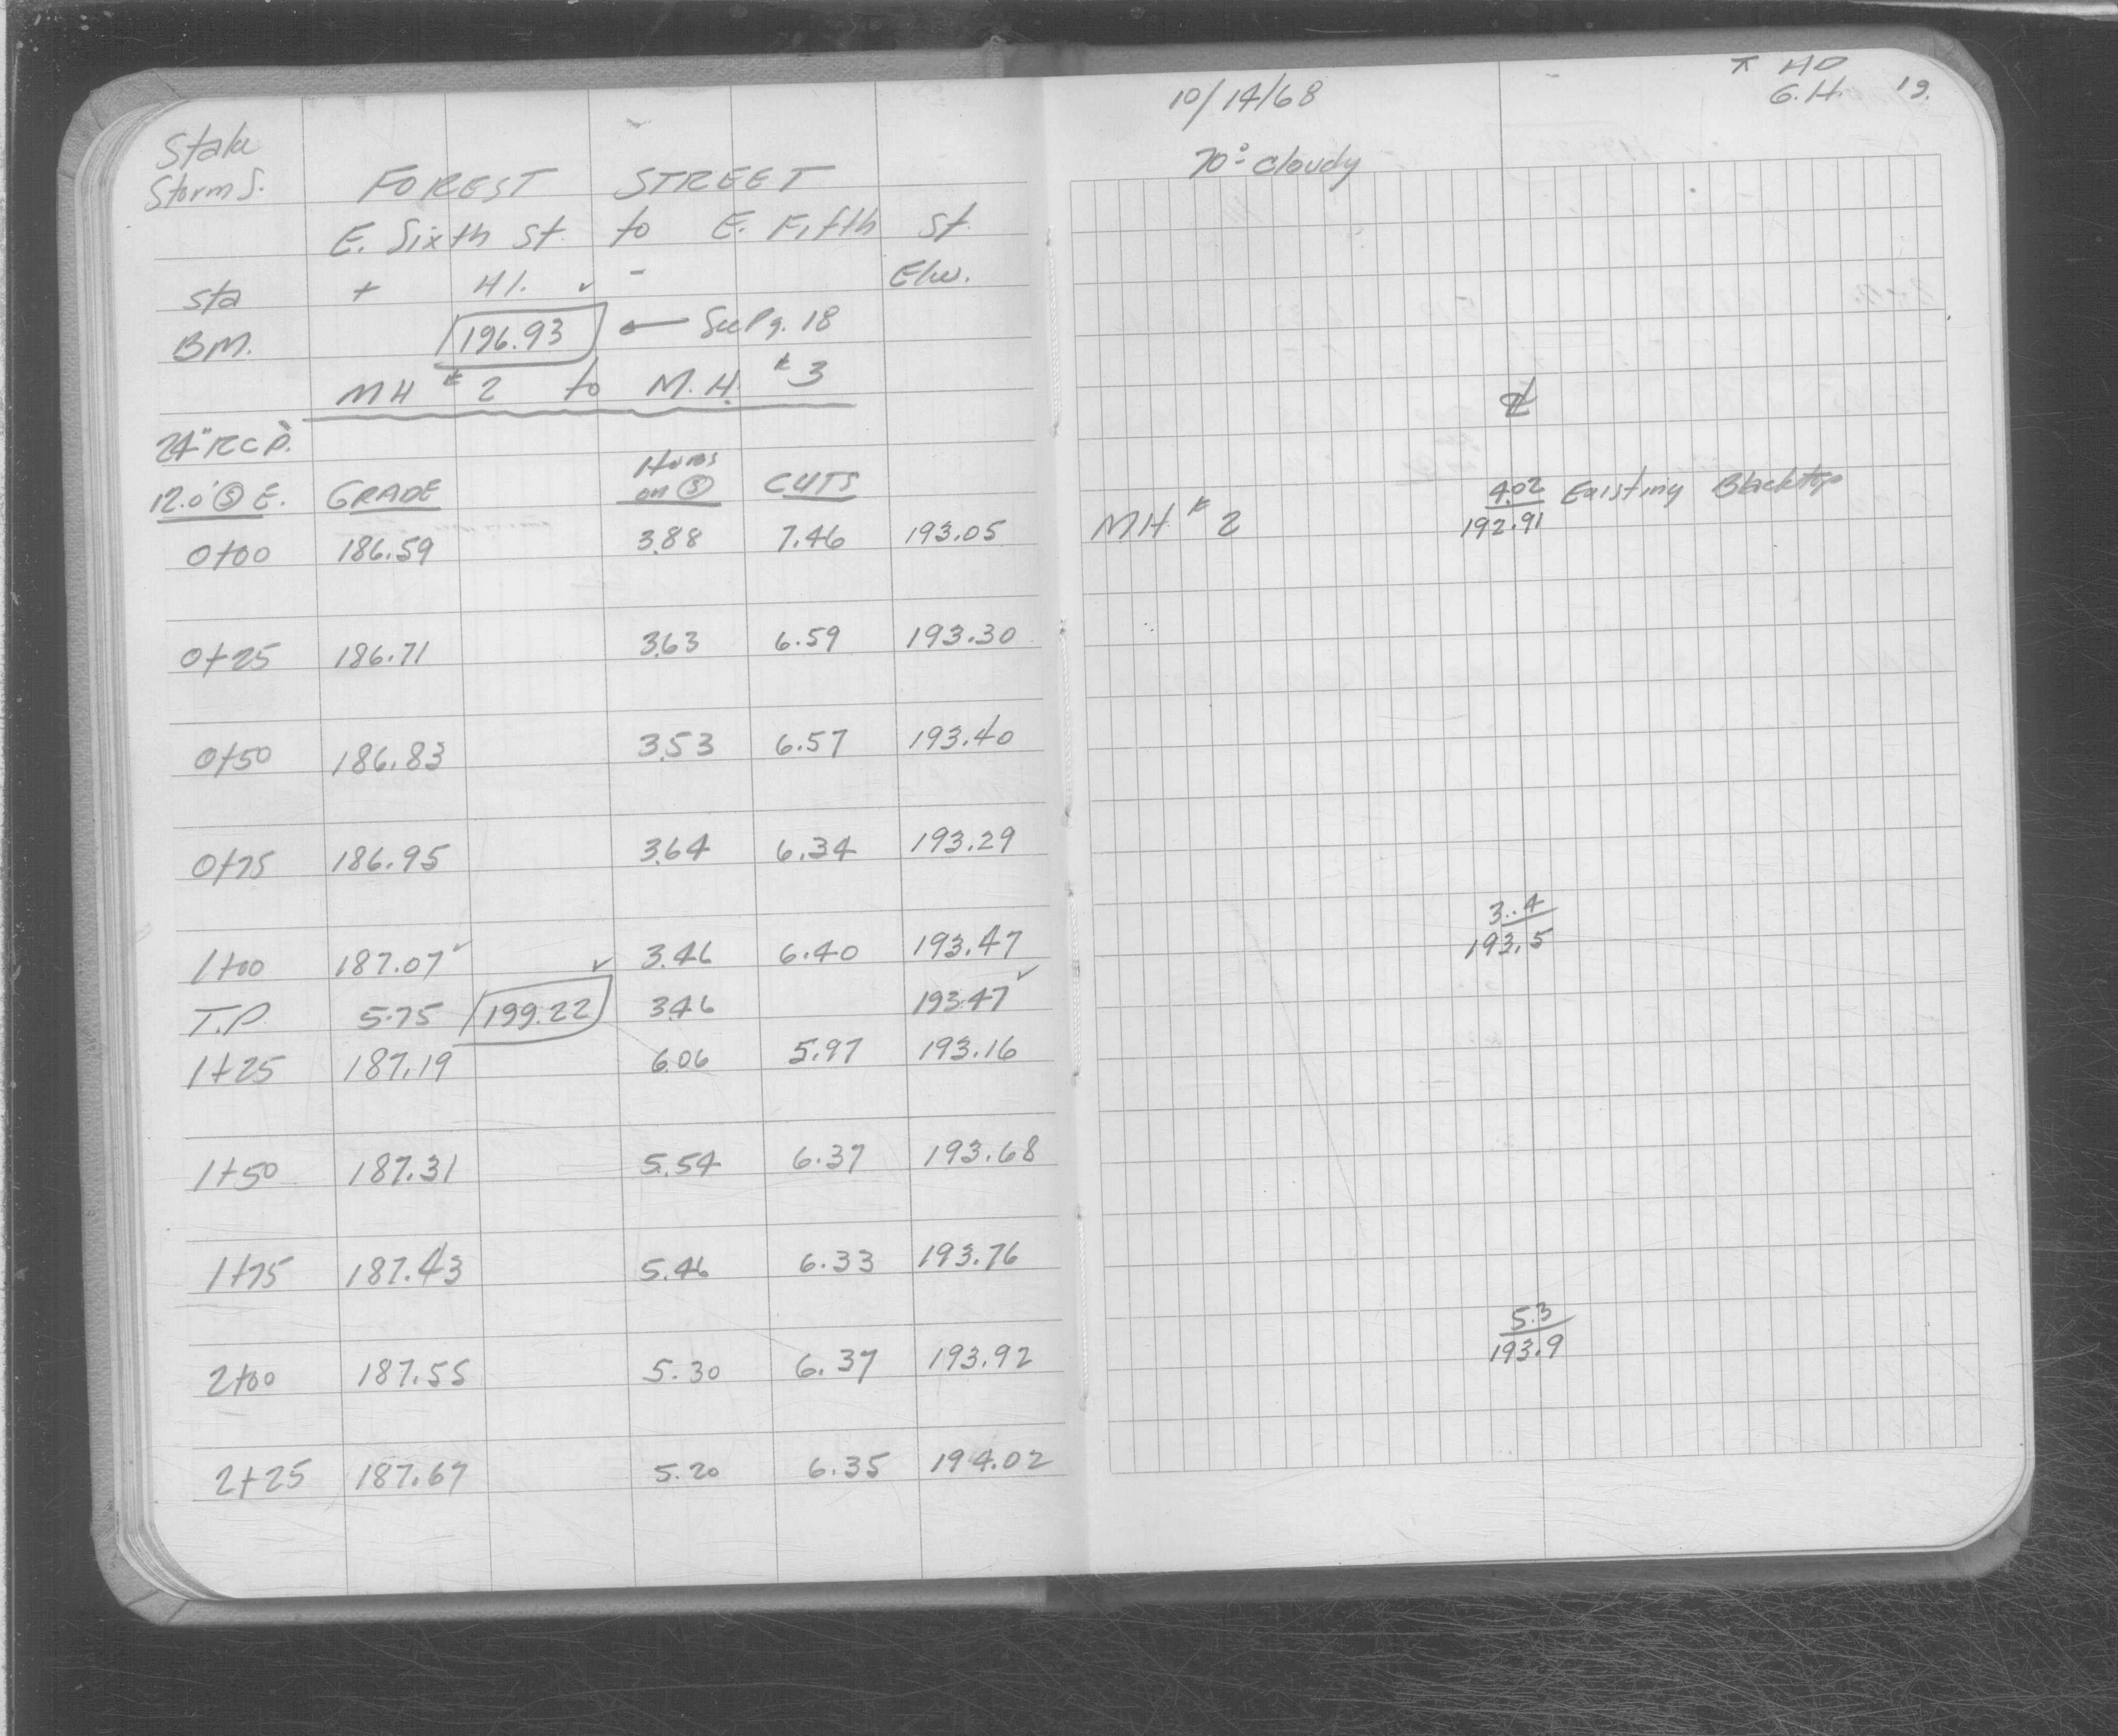 Stake
Storm S.
FOREST STREET
E. Sixth St. to E. Fifth St.
Sta + H.I. ✓ - Elev.
B.M. 196.93 ← See Pg. 18
MH # 2 to M.H. # 3
24" RCP.
12.0' Ⓢ E. GRADE on Ⓢ CUTS
0+00 186.59 3.88 7.46 193.05
0+25 186.71 3.63 6.59 193.30
0+50 186.83 3.53 6.57 193.40
0+75 186.95 3.64 6.34 193.29
1+00 187.07 ✓ ✓ 3.46 6.40 193.47
T.P. 5.75 199.22 3.46 193.47 ✓
1+25 187.19 6.06 5.97 193.16
1+50 187.31 5.54 6.37 193.68
1+75 187.43 5.46 6.33 193.76
2+00 187.55 5.30 6.37 193.92
2+25 187.67 5.20 6.35 194.02
10/14/68
⊼ HD
G.H. 19.
70° - Cloudy
℄
MH # 2
4.02 Existing Blacktop
192.91
3.4
193.5
5.3
193.9